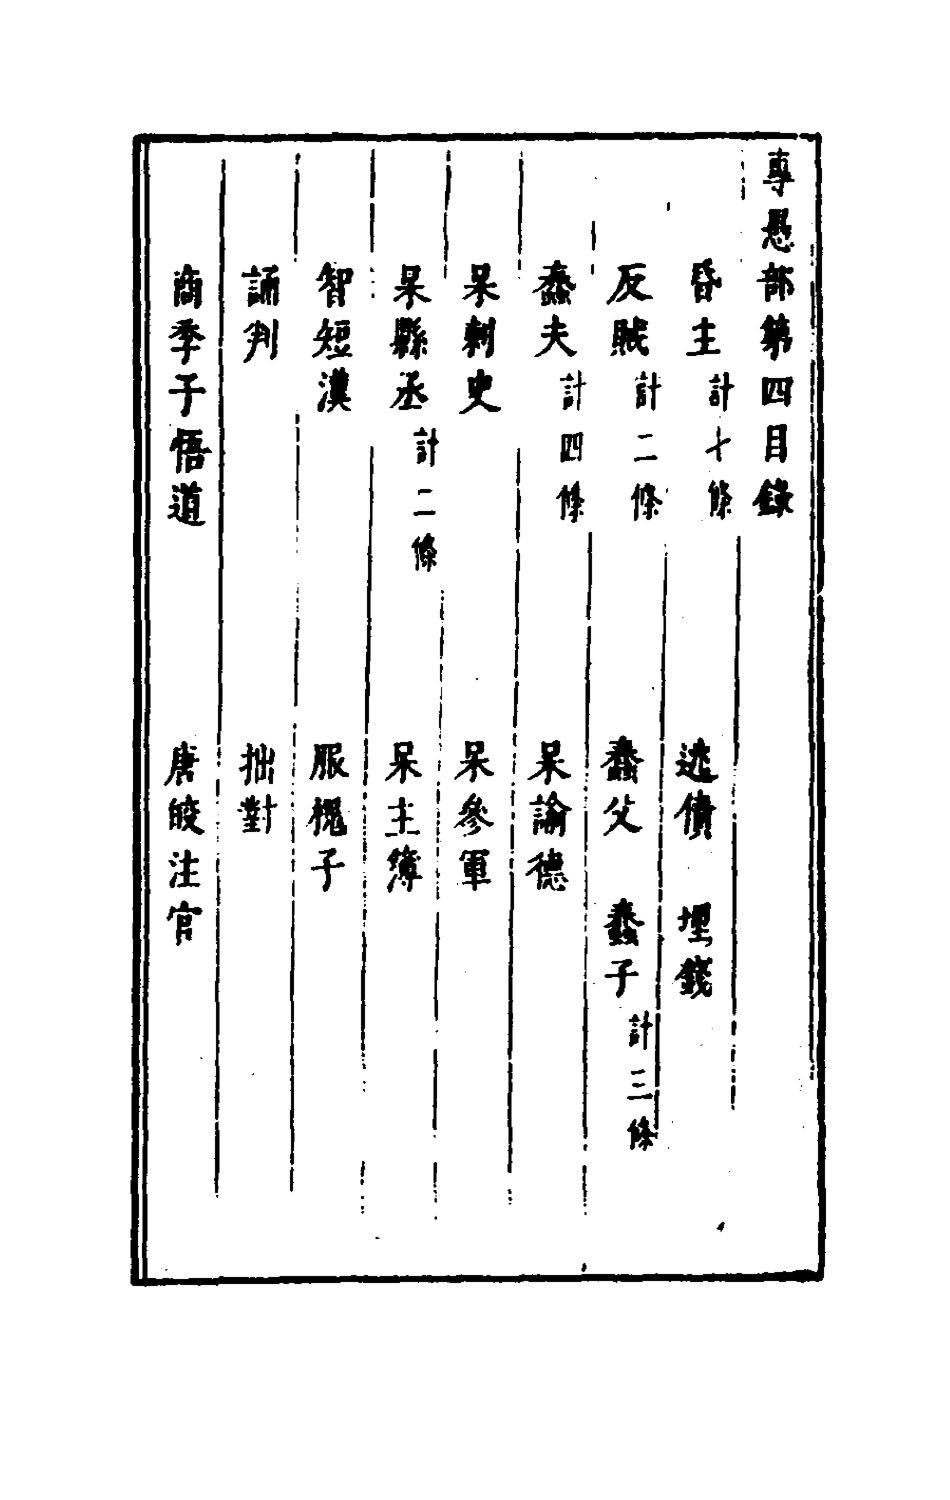 專愚部第四目錄
昏主計七條 逃債 埋錢
反賊計二條 蠢父 蠢子計三條
蠢夫計四條 呆諭德
呆刺史 呆參軍
呆縣丞計二條 呆主簿
智短漢 服槐子
誦判 拙對
商季子悟道 唐皎注官